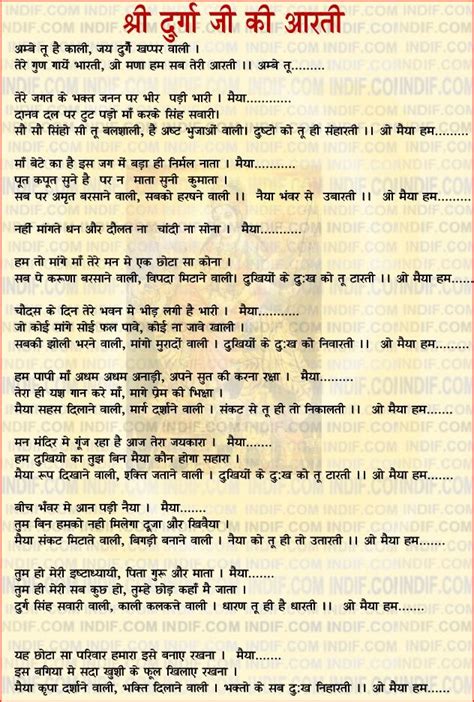 श्री दुर्गा जी की आरती
अम्बे तू है काली, जय दुर्गे खप्पर वाली ।
तेरे गुण गाये भारती, ओ मणा हम सब तेरी आरती ।। अम्बे तू.........
तेरे जगत के भक्त जनन पर भीर पड़ी भारी । मैया............
दानव दल पर टुट पड़ो माँ करके सिंह सवारी।
सौ सौ सिंहो सी तू बलशाली, है अष्ट भुजाओं वाली। दुष्टो को तू ही संहारती ।। ओ मैया हम.........
माँ बेटे का है इस जग में बड़ा ही निर्मल नाता । मैया............
पूत कपूत सुने है पर न माता सुनी कुमाता ।
सब पर अमृत बरसाने वाली, सबको हरषने वाली ।। नैया भंवर से उबारती ।। ओ मैया हम.........
नहीं मांगते धन और दौलत ना चांदी ना सोना । मैया............
हम तो मांगे माँ तेरे मन मे एक छोटा सा कोना ।
सब पे करूणा बरसाने वाली, विपदा मिटाने वाली। दुखियों के दुःख को तू टारती ।। ओ मैया हम.........
चौदस के दिन तेरे भवन मे भीड़ लगी है भारी । मैया............
जो कोई मांगे सोई फल पावे, कोई ना जावे खाली ।
सबकी झोली भरने वाली, मांगो मुरादों वाली । दुखियों के दुःख को निवारती ।। ओ मैया हम.........
हम पापी माँ अधम अधम अनाड़ी, अपने सुत की करना रक्षा । मैया............
तेरा ही यश गान करे माँ, मागे प्रेम की भिक्षा ।
मैया साहस दिलाने वाली, मार्ग दर्शाने वाली । संकट मे तू ही तो निकालती ।। ओ मैया हम.........
मन मंदिर मे गूंज रहा है आज तेरा जयकारा । मैया............
हम दुखियो का तुझ बिन मैया कौन होगा सहारा ।
मैया रूप दिखाने वाली, शक्ति जताने वाली । दुखियों के दुःख को तू टारती ।। ओ मैया हम.........
बीच भँवर मे आन पड़ी नैया । मैया............
तुम बिन हमको नही मिलेगा दूजा और खिवैया ।
मैया संकट मिटाते वाली, बिगड़ी बनाने वाली । नैया को तू ही तो उतारती ।। ओ मैया हम.........
तुम हो मेरी इष्टाध्यायी, पिता गुरू और माता । मैया............
तुम ही हो मेरी सब कुछ हो, तुम्हे छोड़ कहाँ मै जाता ।
दुर्ग सिंह सवारी वाली, काली कलकत्ते वाली । धारण तू ही है धारती ।। ओ मैया हम.......
यह छोटा सा परिवार हमारा इसे बनाए रखना । मैया............
इस बगिया मे सदा खुशी के फूल खिलाए रखना ।
मैया कृपा दर्शाने वाली, भक्ति दिलाने वाली । भक्तो के सब दुःख निहारती ।। ओ मैया हम.......
INDIF.COM